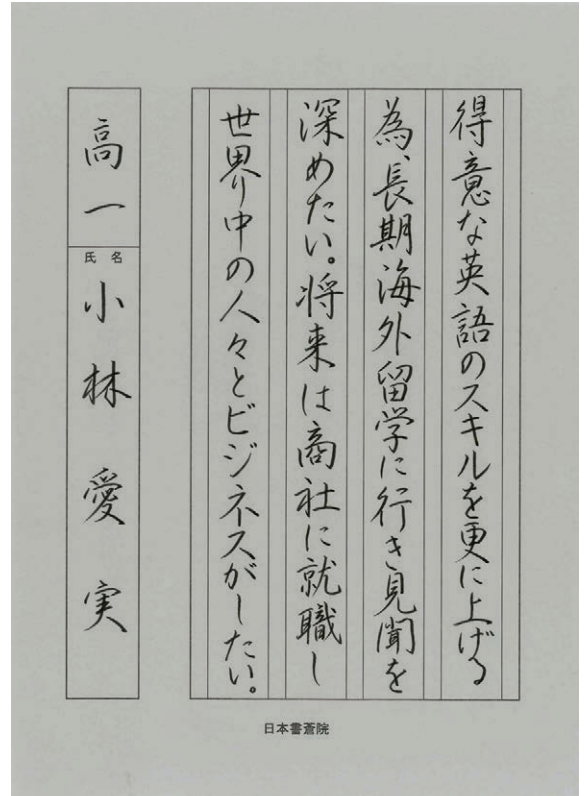 得意な英語のスキルを更に上げる
為、長期海外留学に行き見聞を
深めたい。将来は商社に就職し
世界中の人々とビジネスがしたい。
高一
氏名
小林愛実
日本書蒼院